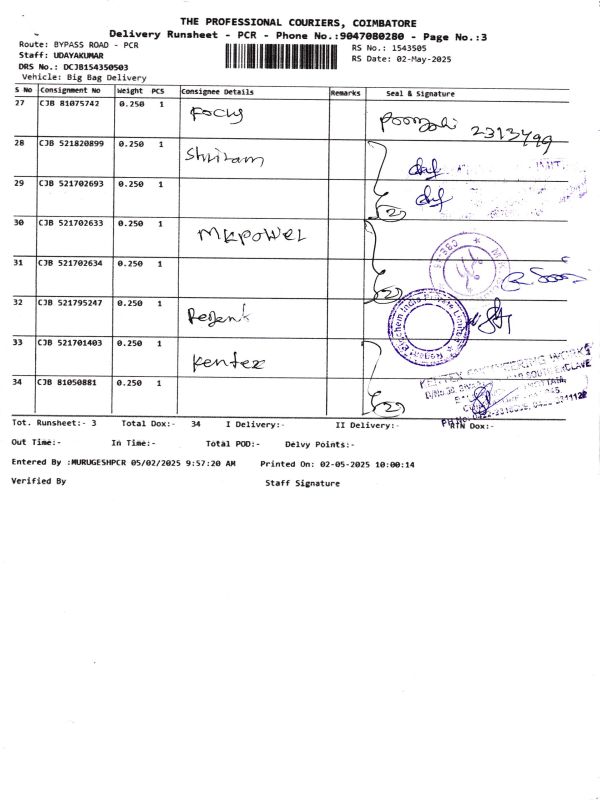 THE PROFESSIONAL COURIERS, COIMBATORE
Delivery Runsheet - PCR - Phone No.:9047080280 - Page No.:3
Route: BYPASS ROAD - PCR
RS No.: 1543505
Staff: UDAYAKUMAR
RS Date: 02-May-2025
DRS No.: DCJB154350503
Vehicle: Big Bag Delivery
S No Consignment No Weight PCS Consignee Details Remarks Seal & Signature
27 CJB 81075742 0.250 1 Focus
2313499
28 CJB 521820899 0.250 1 Shriram
29 CJB 521702693 0.250 1
2
30 CJB 521702633 0.250 1 MKPOWEL
31 CJB 521702634 0.250 1
2
32 CJB 521795247 0.250 1
33 CJB 521701403 0.250 1 Kentex
34 CJB 81050881 0.250 1
2
Tot. Runsheet:- 3 Total Dox:- 34 I Delivery:- II Delivery:- RTN Dox:-
Out Time:- In Time:- Total POD:- Delvy Points:-
Entered By :MURUGESHPCR 05/02/2025 9:57:20 AM Printed On: 02-05-2025 10:00:14
Verified By Staff Signature